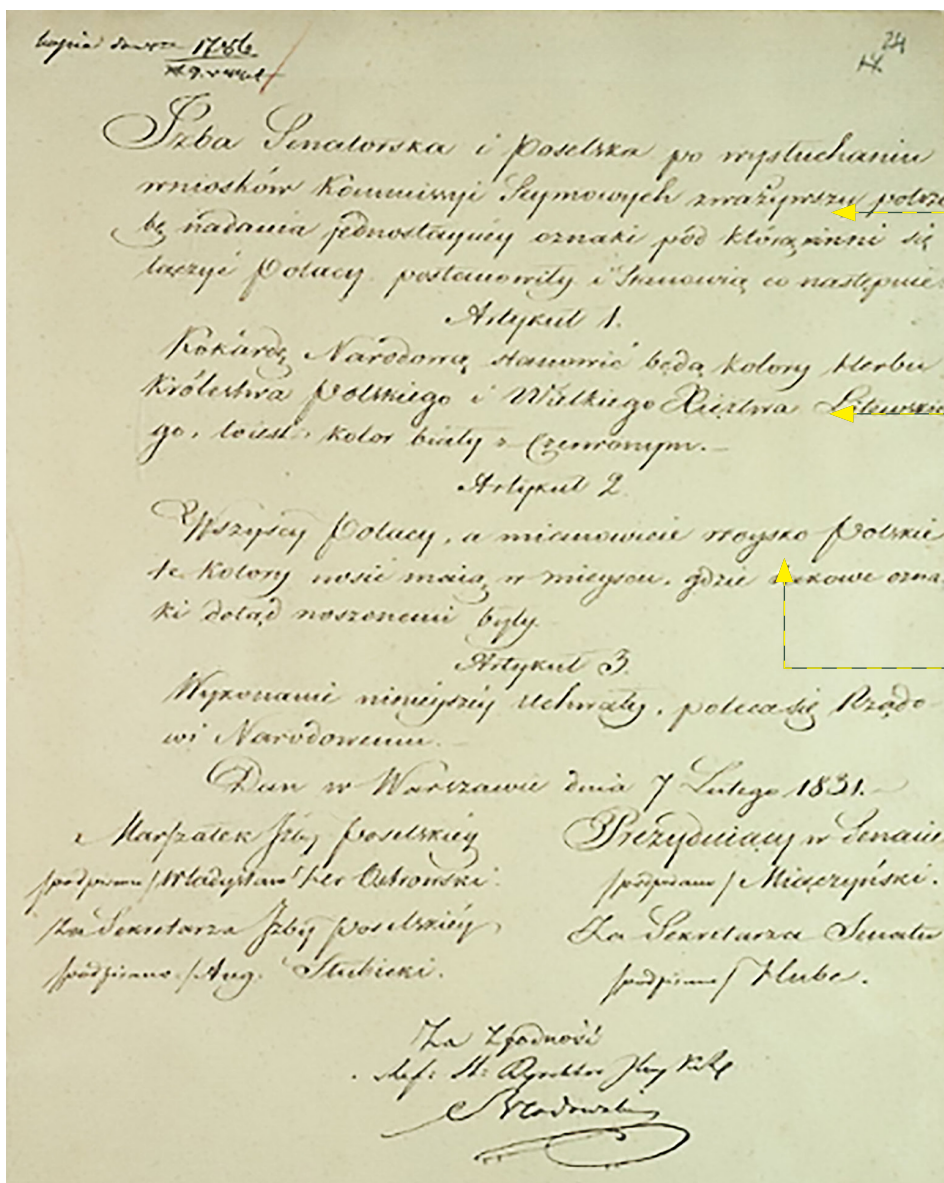 Kopia 1786
24
Izba Senatorska i Poselska po wysłuchaniu
wniosków Kommissyi Seymowych zważywszy potrze
bę nadania jednostayney oznaki pod którą winni się
łączyć Polacy. postanowiły i Stanowią co następuie
Artykuł 1.
Kokardę Narodową stanowić będą kolory Herbu
Królestwa Polskiego i Wielkiego Xięztwa Litewskie
go, to iest, kolor biały z Czerwonym.
Artykuł 2.
Wszyscy Polacy, a mianowicie woysko Polskie
te kolory nosić maią w mieyscu, gdzie takowe ozna
ki dotąd noszonemi były.
Artykuł 3.
Wykonanie ninieyszéy Uchwały, poleca się Rządo
wi Narodowemu.
Dan w Warszawie dnia 7 Lutego 1831.
Marszałek Izby Poselskiéy
Prezyduiący w Senacie
/podpisano/ Władysław Her Ostrowski.
/podpisano/ Miączyński.
Za Sekretarza Izby Poselskiéy
Za Sekretarza Senatu
/podpisano/ Aug. Słubicki.
/podpisano/ Hube.
Za Zgodność